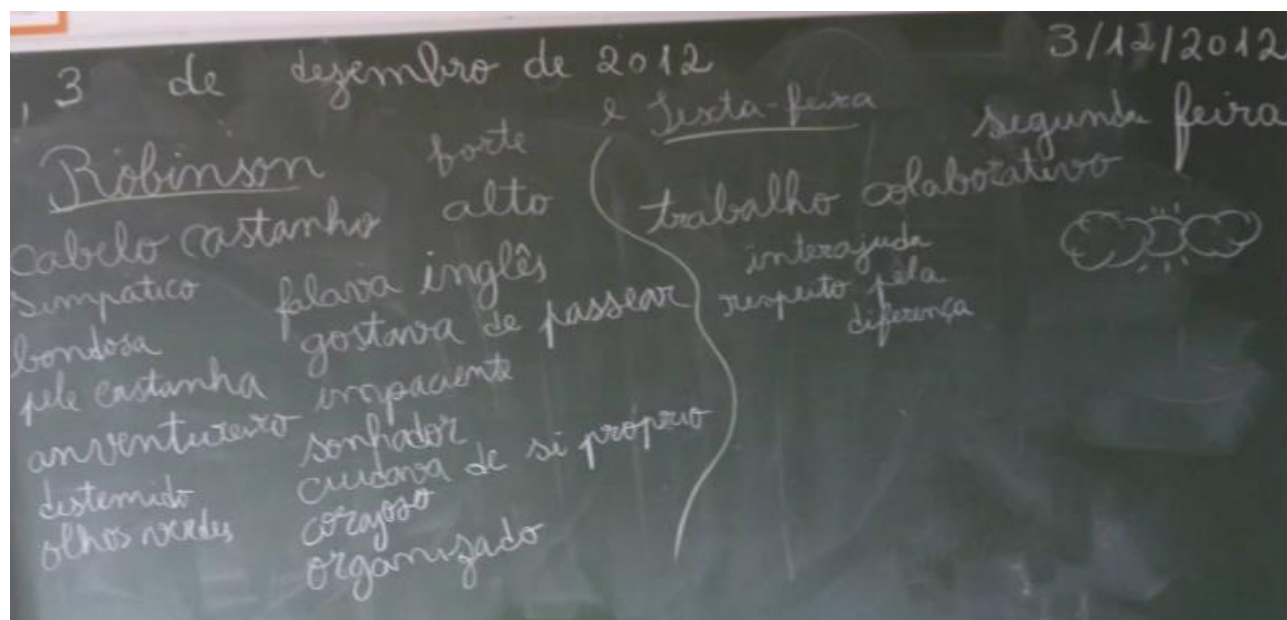 , 3 de dezembro de 2012
3/12/2012
segunda feira
Robinson
e Sexta-feira
forte
cabelo castanho
alto
simpatico
falava inglês
bondosa
gostava de passear
pele castanha
impaciente
anventureiro
sonhador
destemido
cuidava de si proprio
olhos verdes
corajoso
organizado
trabalho colaborativo
interajuda
respeito pela
diferença